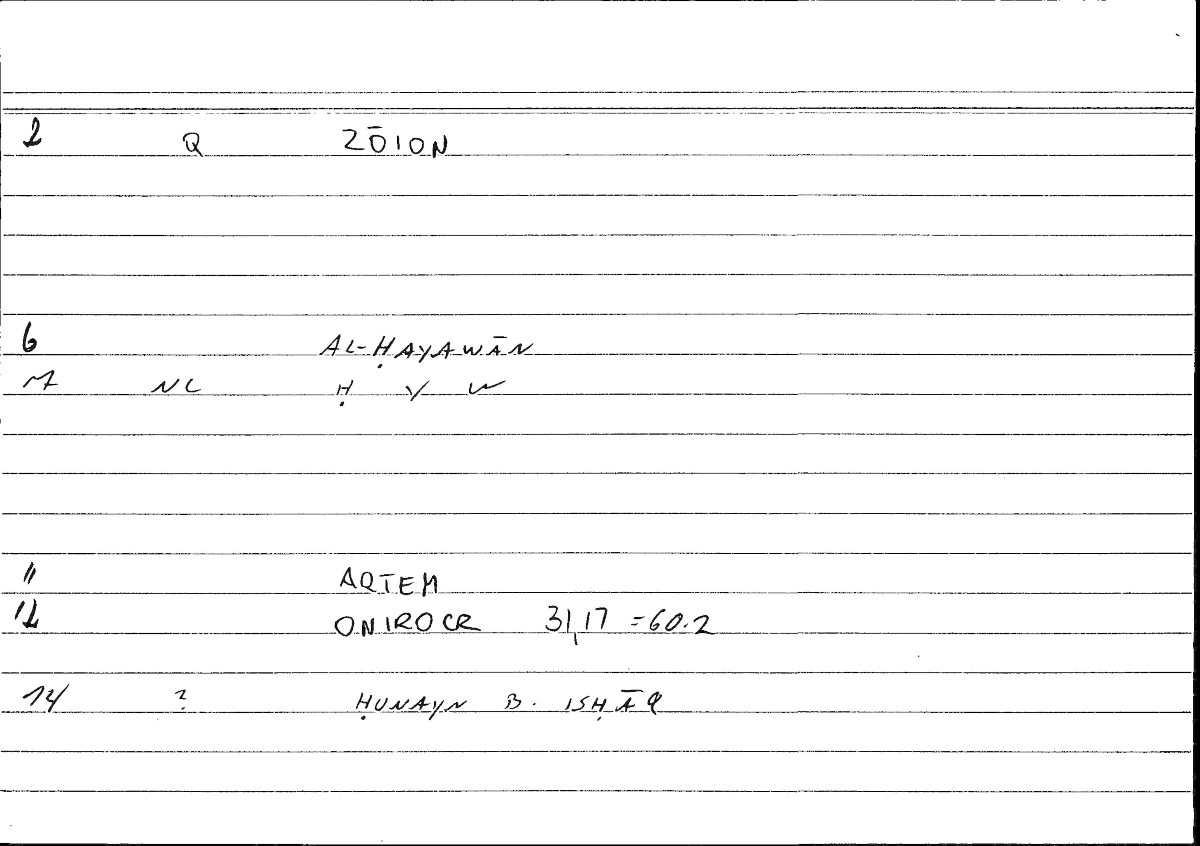 2 Q ZŌION
6 AL-ḤAYAWĀN
7 NC Ḥ Y W
11 ARTEM
12 ONIROCR 31,17 = 60.2
14 ? ḤUNAYN B. ISḤĀQ